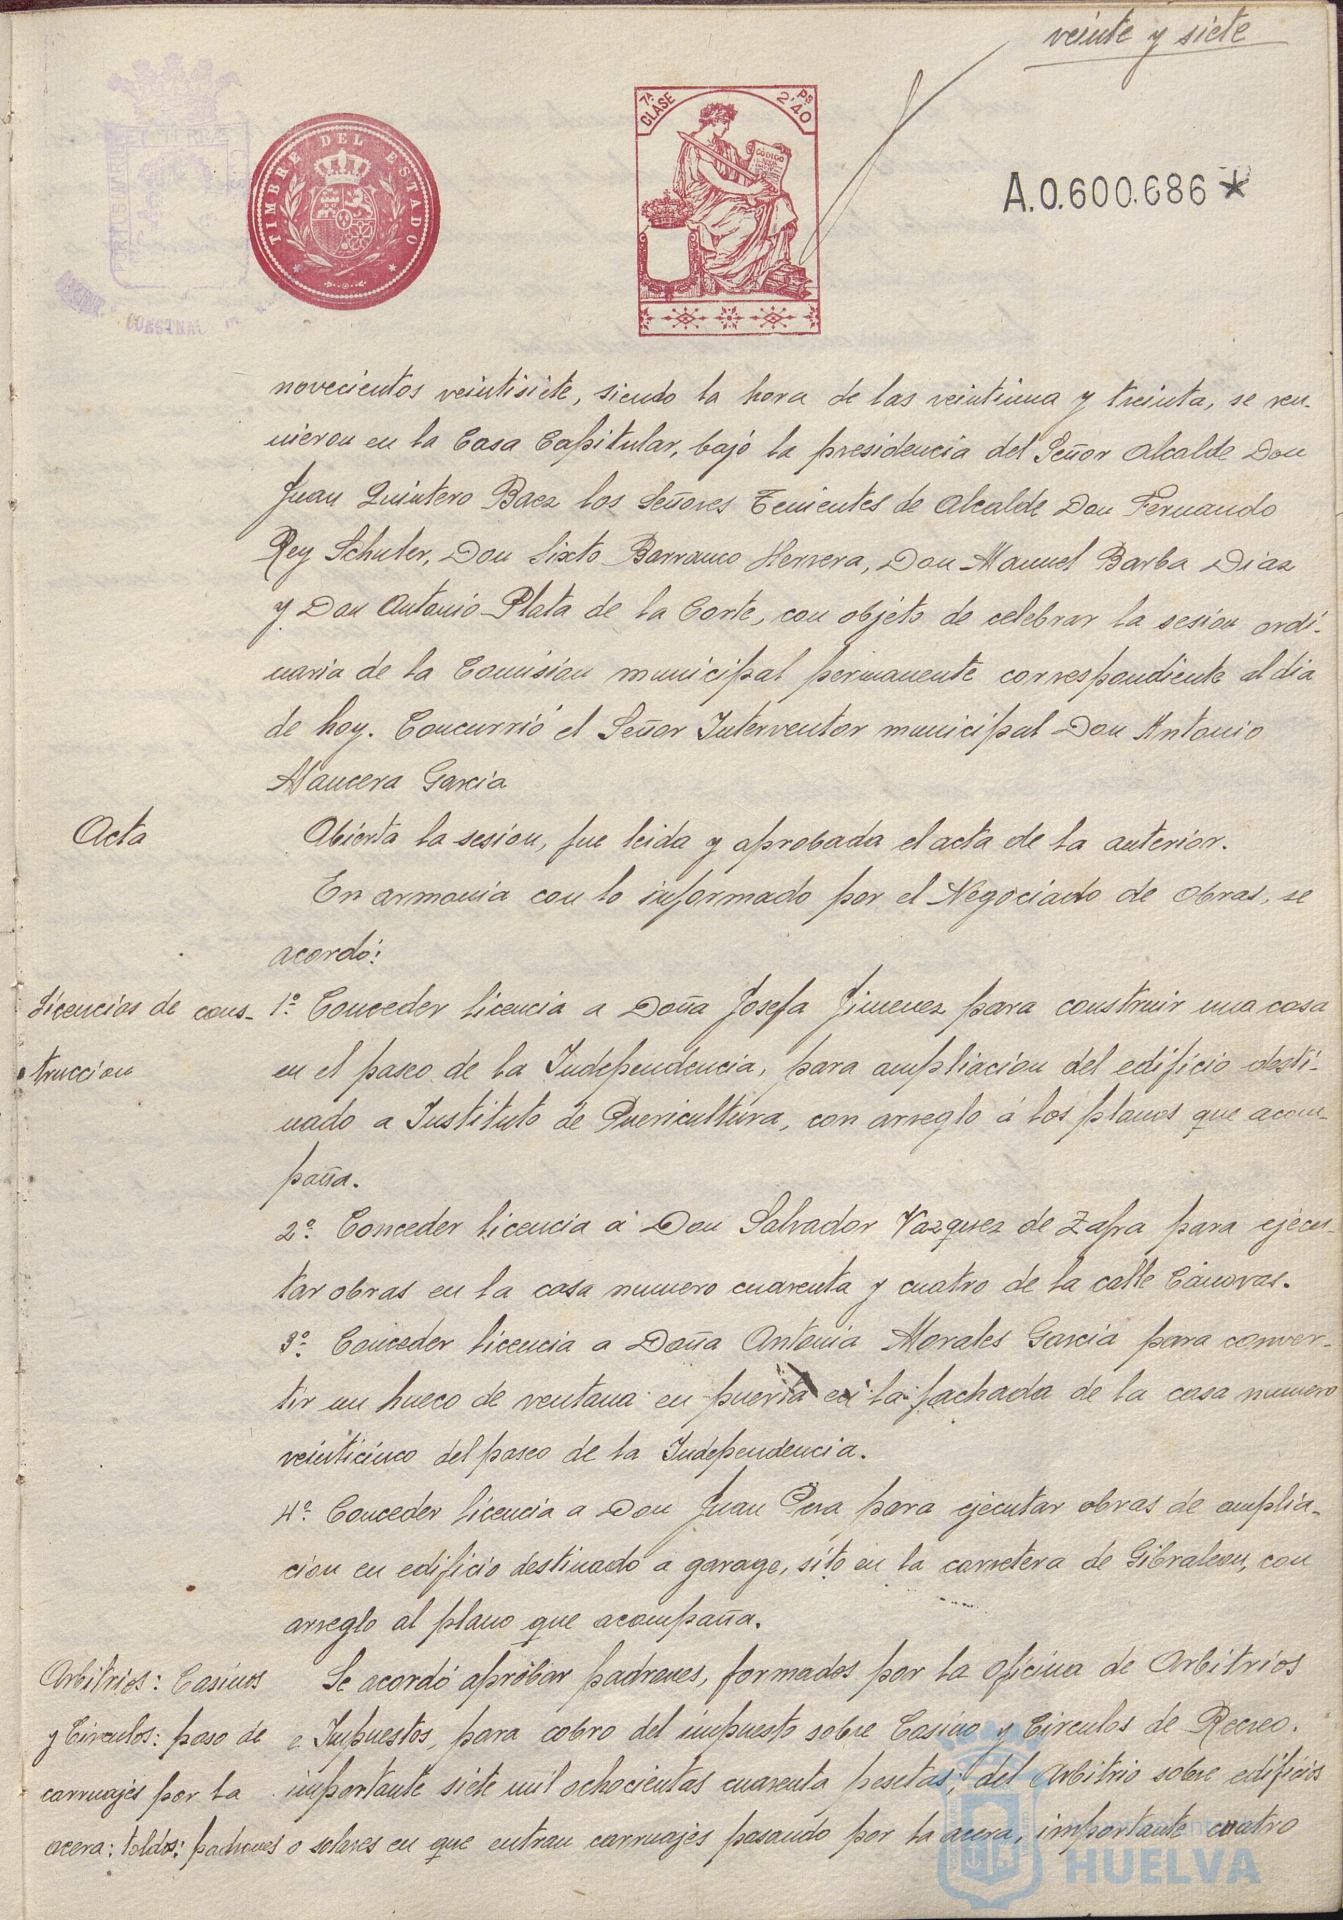 veinte y siete
TIMBRE DEL ESTADO
7ª CLASE
2'40 Ps
CÓDIGO
A.0.600.686*
novecientos veintisiete, siendo la hora de las veintiuna y treinta, se reu-
nieron en la Casa Capitular, bajo la presidencia del Señor Alcalde Don
Juan Quintero Baez los Señores Tenientes de Alcalde Don Fernando
Rey Schuler, Don Sixto Barranco Herrera, Don Manuel Barba Diaz
y Don Antonio Plata de la Corte, con objeto de celebrar la sesion ordi-
naria de la Comision municipal permanente correspondiente al dia
de hoy. Concurrió el Señor Interventor municipal Don Antonio
Mancera Garcia
Acta
Abierta la sesion, fue leida y aprobada el acta de la anterior.
En armonia con lo informado por el Negociado de Obras, se
acordó:
Licencias de cons-
truccion
1º Conceder licencia a Doña Josefa Jimenez para construir una casa
en el paseo de la Independencia, para ampliacion del edificio desti-
nado a Instituto de Puericultura, con arreglo á los planos que acom-
paña.
2º Conceder licencia á Don Salvador Vazquez de Zafra para ejecu-
tar obras en la casa numero cuarenta y cuatro de la calle Cánovas.
3º Conceder licencia a Doña Antonia Morales Garcia para conver-
tir un hueco de ventana en puerta en la fachada de la casa numero
veinticinco del paseo de la Independencia.
4º Conceder licencia a Don Juan Pera para ejecutar obras de amplia-
cion en edificio destinado a garage, sito en la carretera de Gibraleon, con
arreglo al plano que acompaña.
Arbitrios: Casinos
y Circulos: paso de
carruajes por la
acera: toldos: padrones
Se acordó aprobar padrones, formados por la oficina de Arbitrios
e Impuestos, para cobro del impuesto sobre Casino y Circulos de Recreo.
importante siete mil ochocientas cuarenta pesetas; del Arbitrio sobre edificios
o solares en que entran carruajes pasando por la acera, importante cuatro
HUELVA